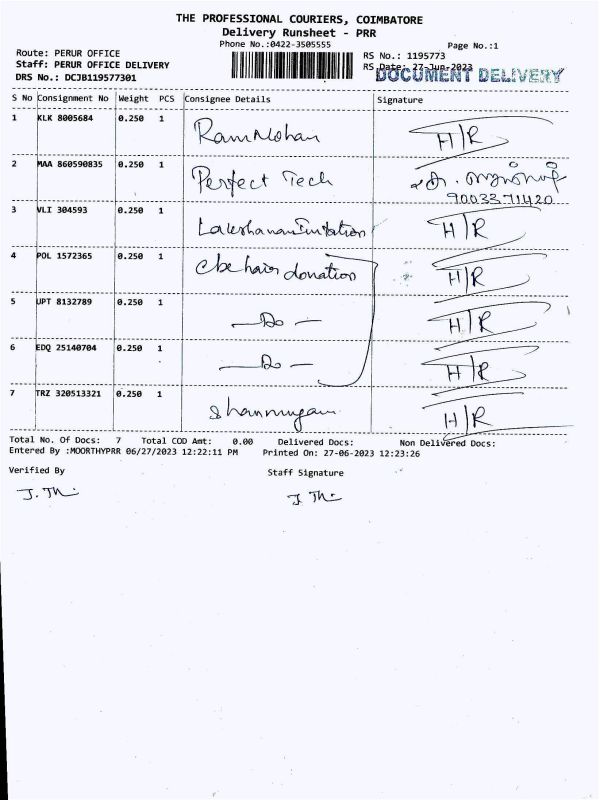 THE PROFESSIONAL COURIERS, COIMBATORE
Delivery Runsheet - PRR
Phone No.:0422-3505555
Page No.:1
Route: PERUR OFFICE
RS No.: 1195773
Staff: PERUR OFFICE DELIVERY
RS Date: 27-Jun-2023
DOCUMENT DELIVERY
DRS No.: DCJB119577301
S No Consignment No Weight PCS Consignee Details Signature
1 KLK 8005684 0.250 1 RamMohan H/R
2 MAA 860590835 0.250 1 Perfect Tech
9003371420
3 VLI 304593 0.250 1 H/R
4 POL 1572365 0.250 1 Cbe hair donation H/R
5 UPT 8132789 0.250 1 — Do — H/R
6 EDQ 25140704 0.250 1 — Do — H/R
7 TRZ 320513321 0.250 1 Shanmugam H/R
Total No. Of Docs: 7 Total COD Amt: 0.00 Delivered Docs: Non Delivered Docs:
Entered By :MOORTHYPRR 06/27/2023 12:22:11 PM Printed On: 27-06-2023 12:23:26
Verified By Staff Signature